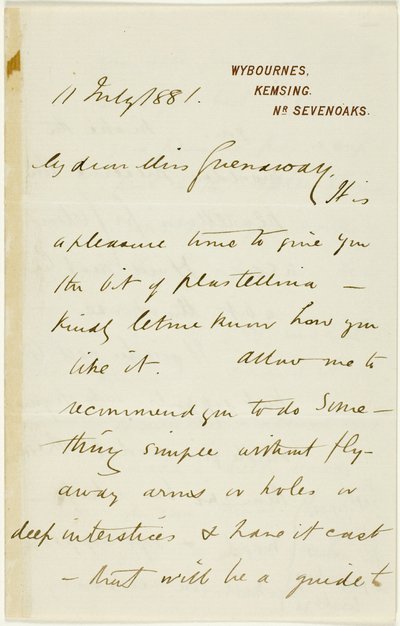 WYBOURNES,
KEMSING.
NR SEVENOAKS.
11 July 1881.
My dear Miss Greenaway,
It is
a pleasure to me to give you
the bit of plastellina —
Kindly let me know how you
like it. Allow me to
recommend you to do Some-
thing simple without fly-
away arms or holes or
deep interstices & have it cast
- that will be a guide to